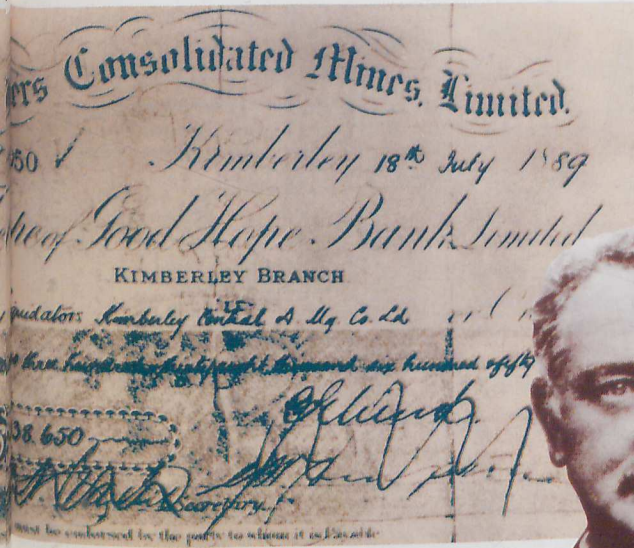 ers Consolidated Mines, Limited.
50 Kimberley 18th July 1889
of Good Hope Bank Limited
KIMBERLEY BRANCH
quidators Kimberley Central D Mg. Co. Ld
three hundred thousand six hundred &
38.650
Secretary
must be endorsed by the party to whom it is Payable